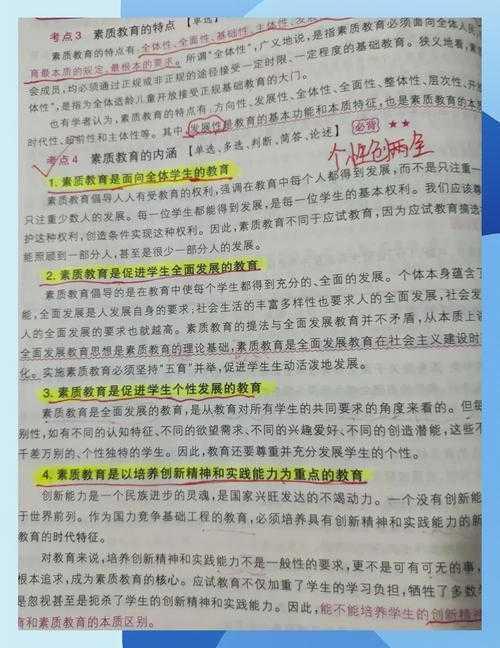 考点3 素质教育的特点【单选】
素质教育的特点有：全体性、全面性、基础性、主体性、发展
育最本质的规定、最根本的要求。所谓“全体性”，广义地说，是指素质教育必须面向全体人民
会成员，均必须通过正规或非正规的途径接受一定时限、一定程度的基础教育。狭义地看，素
体性”，是指为全体适龄儿童开放接受正规基础教育的大门。
也有学者认为，素质教育的特点有：方向性、发展性、全体性、全面性、整体性、层次性、开
时代性、超前性和主体性等。其中，发展性是教育的基本功能和本质特征，也是素质教育的本
考点4 素质教育的内涵【单选、多选、判断、简答、论述】 必背 ★★
个性创两全
1. 素质教育是面向全体学生的教育
素质教育倡导人人有受教育的权利，强调在教育中每个人都得到发展，而不是只注重一
只注重少数人的发展。每一位学生都能得到发展，是每一位学生的基本权利。我们应该尊
护这种权利，创造条件实现这种权利。因此，素质教育不同于应试教育，因为应试教育搞选
能照顾到一部分人，甚至是很少一部分人的发展。
2. 素质教育是促进学生全面发展的教育
素质教育倡导的是在教育中使每个学生都得到充分的、全面的发展。个体本身蕴含了
能，全面发展是人发展自身的要求；社会生活的丰富多样性也要求人的全面发展，社会发
人的全面发展的要求也就越高。素质教育的提法与全面发展教育并不矛盾，从本质上说
全面发展教育思想是素质教育的理论基础，素质教育是全面发展教育在社会主义建设时
化。实施素质教育必须坚持“五育”并举，促进学生生动活泼地发展。
3. 素质教育是促进学生个性发展的教育
素质教育是全面发展的教育，是从教育对所有学生的共同要求的角度来看的。但每
别性，如有不同的认知特征、不同的欲望需求、不同的兴趣爱好、不同的创造潜能，这些不
千差万别的、个性独特的学生。因此，教育还要尊重并充分发展学生的个性。
4. 素质教育是以培养创新精神和实践能力为重点的教育
创新能力是一个民族进步的灵魂，是国家兴旺发达的不竭动力。一个没有创新能
于世界前列。作为国力竞争基础工程的教育，必须培养具有创新精神和实践能力的新
教育的时代特征。
对教育来说，培养创新精神和实践能力不是一般性的要求，更不是可有可无的事，
根本追求，成为素质教育的核心。应试教育不仅加重了学生的学习负担，牺牲了多数
是忽视甚至是扼杀了学生的创新精神和实践能力。因此，能不能培养学生的创新精神
育和素质教育的本质区别。